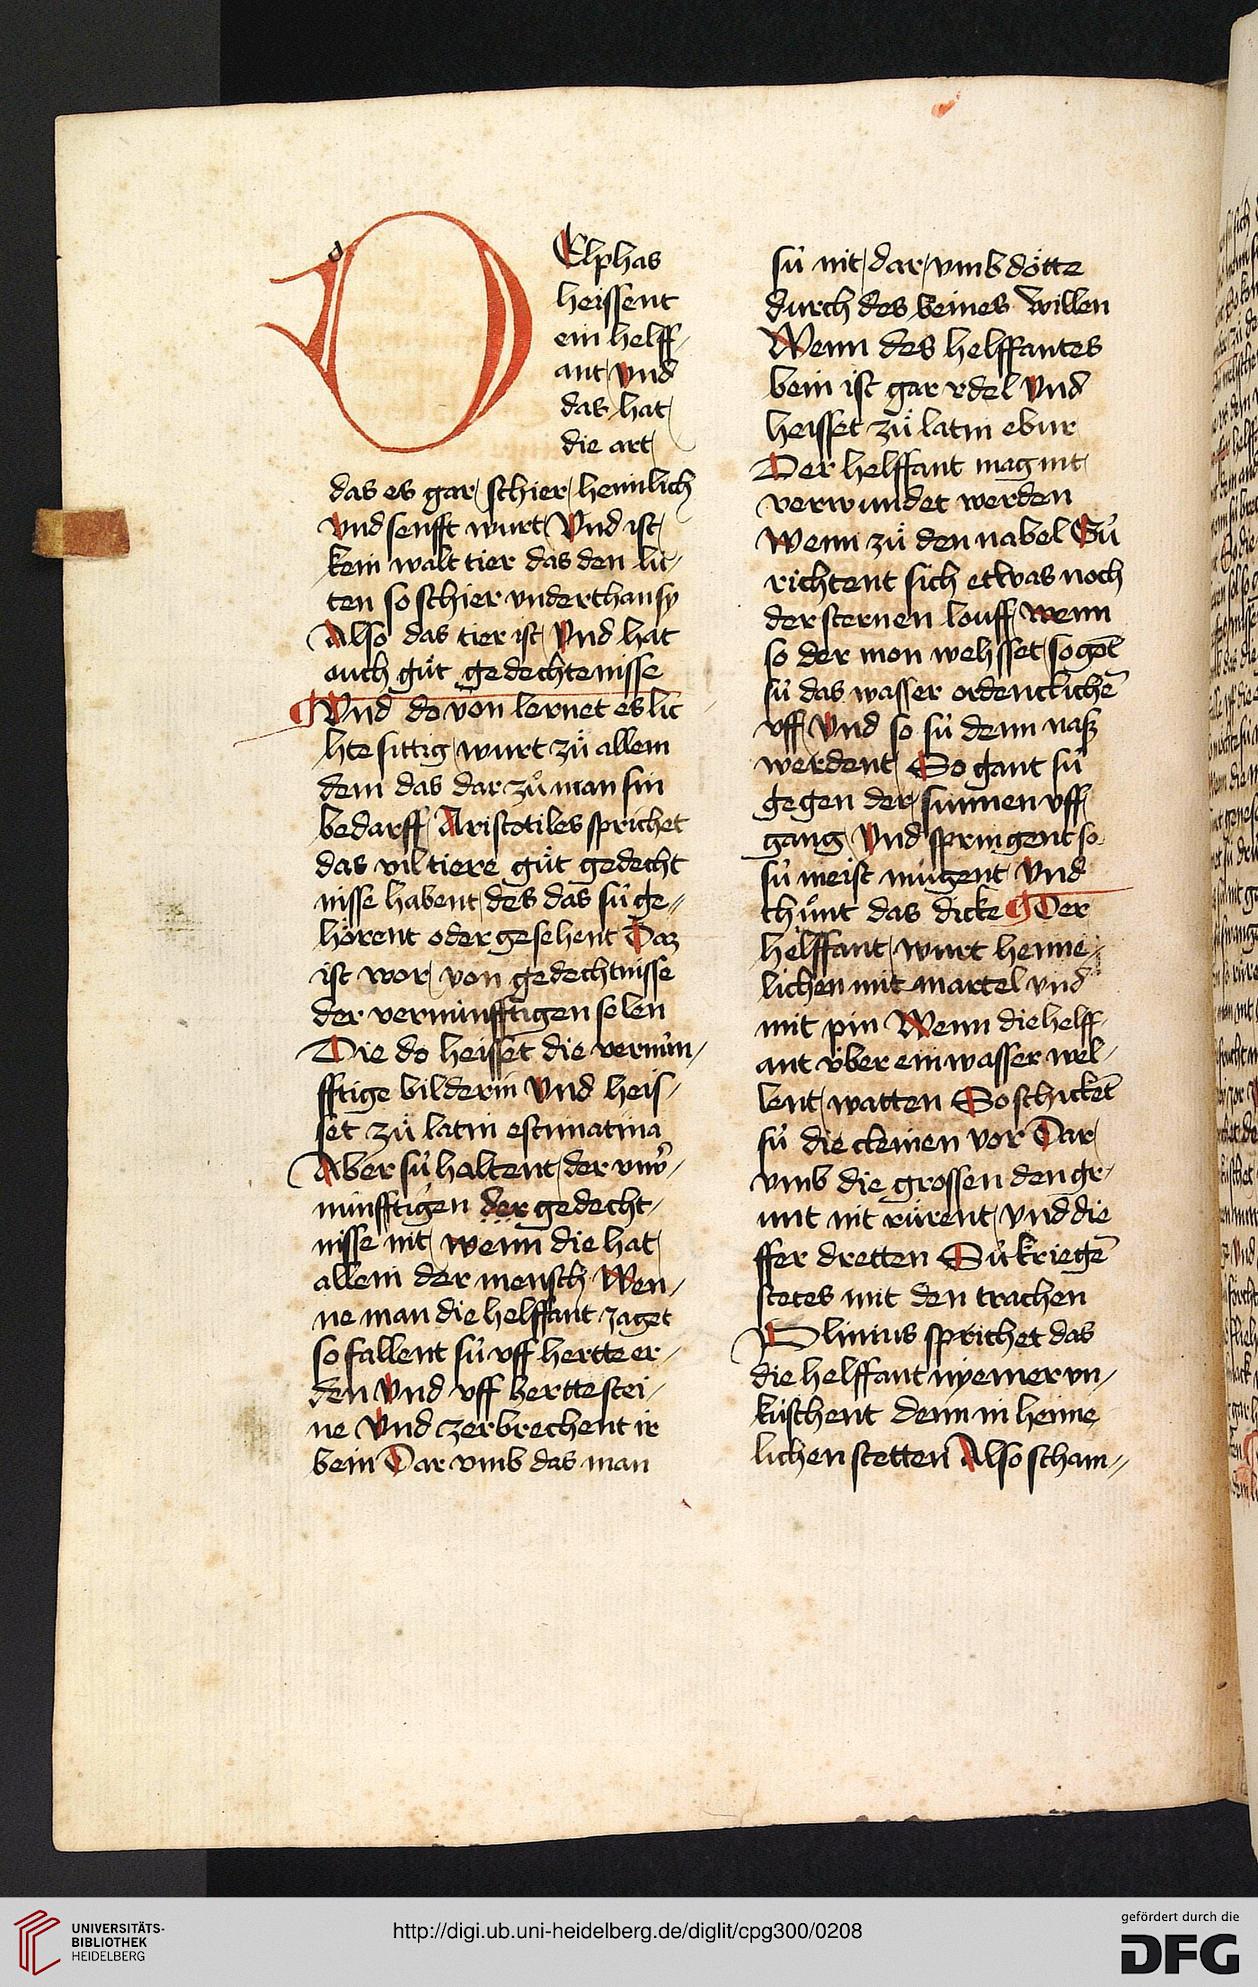 d
D Elphas
heissent
ein helff-
ant vnd
das hat
die art
das es gar schier heimlich
vnd senfft wurt Vnd ist
kein walt tier das den lu-
ten so schier vnderthan sy
Also das tier ist Vnd hat
ouch guͦt gedechtenisse
Vnd do von lernet es lic
hte sittig wurt zuͦ allem
dem das dar zuͦ man sin
bedarff Aristotiles sprichet
das vil tiere guͦt gedecht
nisse habent des das sú ge-
hoͤrent oder gesehent Daz
ist wor von gedechtnisse
der vernúnfftigen selen
Die do heisset die vernún-
fftige bilderin Vnd heis-
set zuͦ latin estimatina
Aber sú haltent der vnv̓-
núnfftigen der gedecht-
nisse nit wenn die hat
allein der mensch Wen-
ne man die helffant jaget
so fallent sú vff hertte er-
den Vnd vff herttestei-
ne Vnd zerbrechent ir
bein Dar vmb das man
sú nit dar vmb doͤtte
durch des beines willen
Wenn des helffantes
bein ist gar edel Vnd
heisset zuͦ latin ebur
Der helffant mag nit
verwundet werden
Wenn zuͦ den nabel Sú
richtent sich etwas noch
der sternen louff wenn
so der mon wehsset so got
sú das wasser ordentlichē
vff Vnd so sú denn naß
werdent So gant sú
gegen der sunnen vff
gang Vnd springent so
sú meist múgent Vnd
thuͦnt das dicke Der
helffant wurt heime-
lichen mit martel vnd
mit pin Wenn die helff-
ant v́ber ein wasser wel-
lent watten So schickēt
sú die cleinen vor Dar
vmb die grossen den gr-
unt nit ruͤrent Vnd die
ffer dretten Sú kriegē
stetes mit den trachen
Plinius sprichet das
die helffant nyemer vn-
kúschent denn in heime
lichen stetten Also scham-
UNIVERSITÄTS-
BIBLIOTHEK
HEIDELBERG
http://digi.ub.uni-heidelberg.de/diglit/cpg300/0208
gefördert durch die
DFG